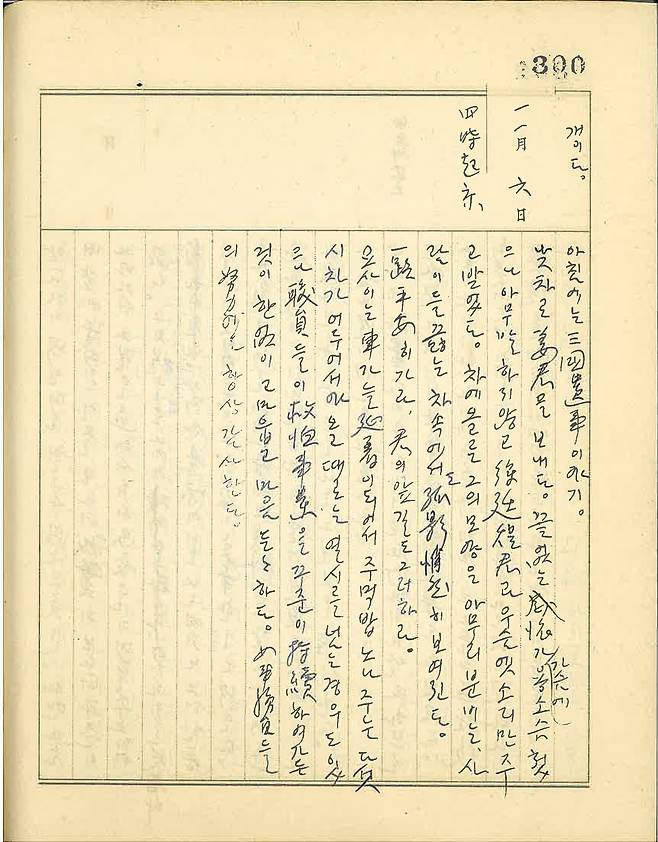 300
개이다.
一一月 六日
四時起床、
아침에는 三國遺事 이야기。
낮차로 姜君을 보내다. 끝없는 感懷가 가슴에 용소슴 쳤
으나 아무 말 하지 않고 徐廷 君과 우슬엣소리만 주
고 받았다。 차에 올른 그의 모양은 아무리 분비는、 사
람이 들끓는 차속에서도 孤影悄然히 보여진다。
一路平安히 가라、君의 앞길도 그러하라。
요사이는 車가 늘 延着이 되어서 주먹밥 노나 주는 다
시 차가 어두어서야 오고 때로는 열시를 넘는 경우도 있
으나 職員들이 救恤事業을 꾸준이 持續하여 가는
것이 한없이 고마웁고 마음 든든하다。 職員들
의 努力에는 항상 감사한다。